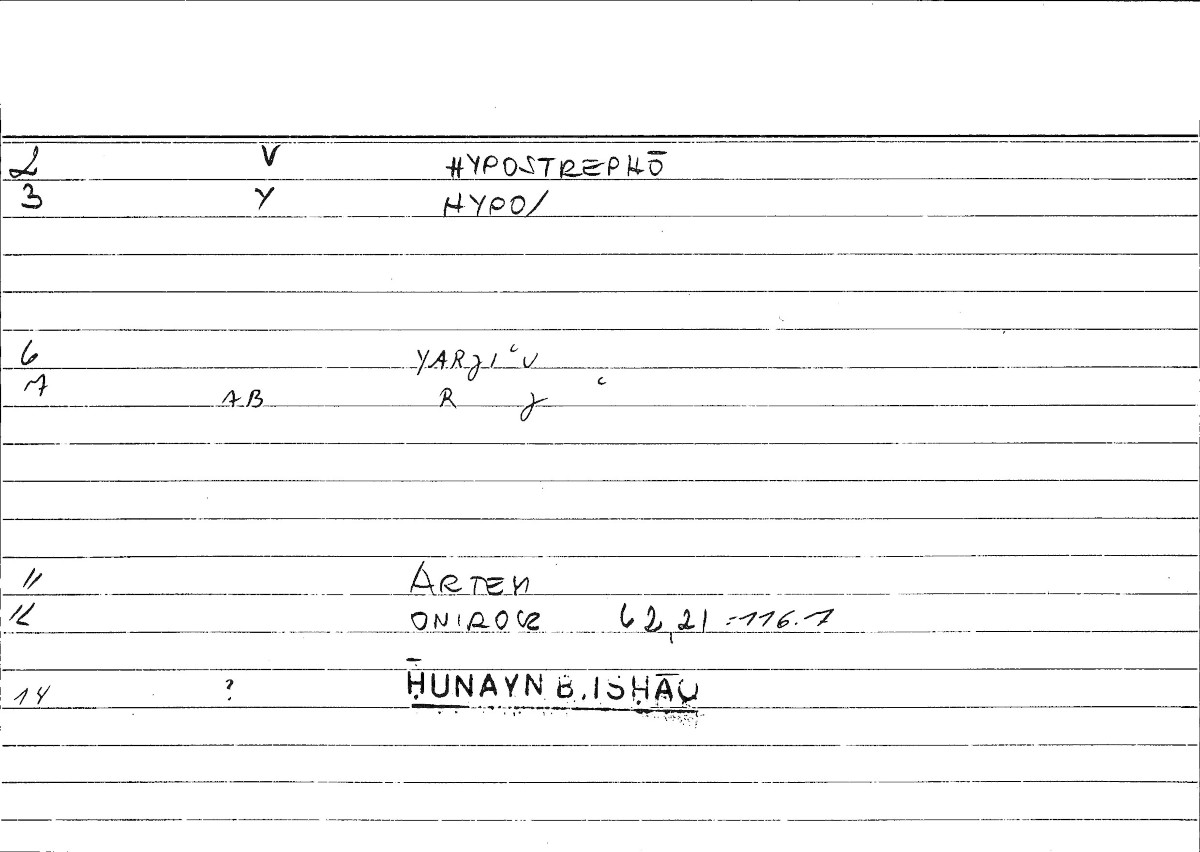 2 V HYPOSTREPHŌ
3 Y HYPO/
6 YARJIʿU
7 AB R J ʿ
11 ARTEM
12 ONIROCR 62,21 = 116.7
14 ? ḤUNAYN B. ISḤĀQ